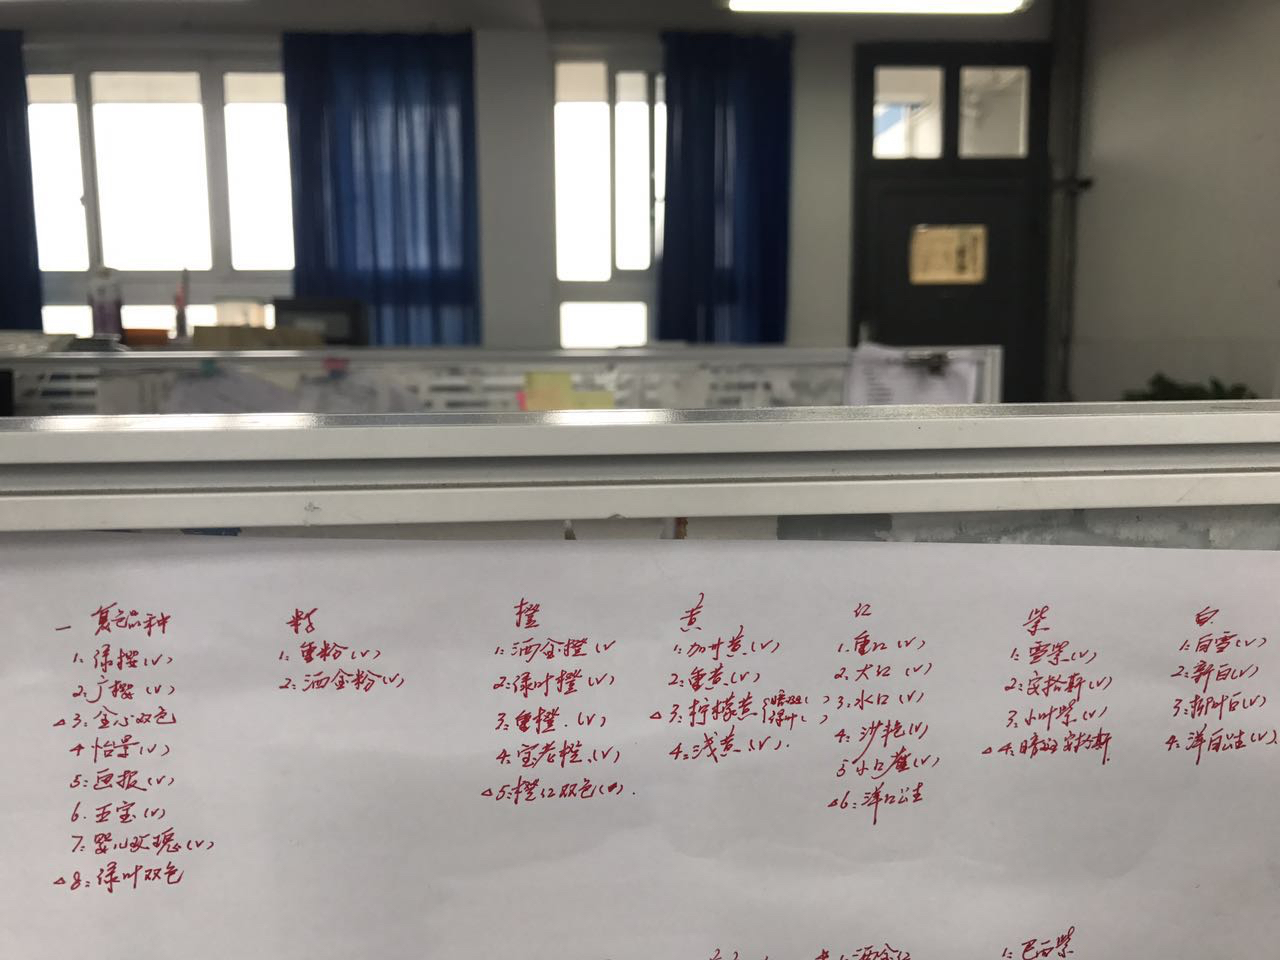 一 复色品种
1: 绿樱(√)
2: 广樱(√)
△3: 金心双色
4 怡景(√)
5: 画报(√)
6. 亚宝(√)
7: 婴儿玫瑰(√)
△8: 绿叶双色
粉
1: 重粉(√)
2: 洒金粉(√)
橙
1: 洒金橙(√
2: 绿叶橙(√)
3: 重橙.(√)
4: 宝老橙.(√)
△5: 橙红双色(√).
黄
1: 加州黄.(√)
2: 重黄.(√)
△3: 柠檬黄
绿叶( )
4: 浅黄.(√).
红
1. 重红(√)
2. 大红 (√)
3. 水红(√)
4: 沙艳(√)
5 小红(√)
△6: 洋红
紫
1: 雪紫(√)
2: 安格斯(√)
3: 小叶紫(√)
△4: 暗斑安格斯
白
1: 白雪(√)
2: 新白(√)
3: 柳叶白(√)
4: 洋白(√)
洒金红
1: 巴西紫